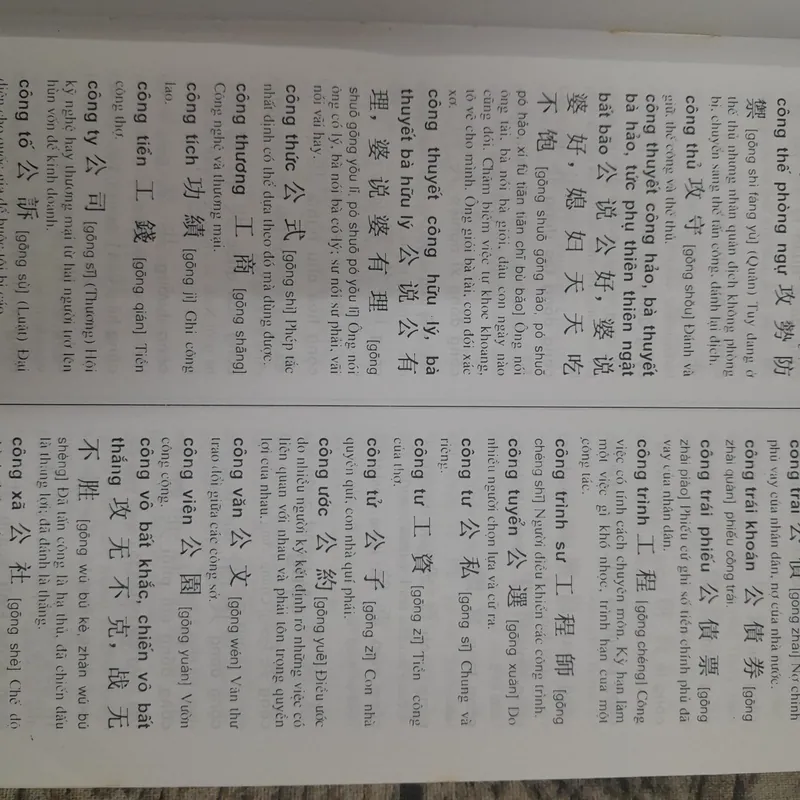 công thế phòng ngự 攻 勢 防
禦 [gōng shì fáng yù] (Quân) Tuy đang ở
thế thủ nhưng nhân quân địch không phòng
bị, chuyển sang thế tấn công, đánh lại địch.
công thủ 攻 守 [gōng shǒu] Đánh và
giữ, thế công và thế thủ.
công thuyết công hảo, bà thuyết
bà hảo, tức phụ thiên thiên ngật
bất bão 公 说 公 好, 婆 说
婆 好, 媳 妇 天 天 吃
不 饱 [gōng shuō gōng hǎo, pó shuō
pó hǎo, xí fù tiān tiān chī bù bǎo] Ông nói
ông tài, bà nói bà giỏi, dâu con ngày nào
cũng đói. Châm biếm việc tự khoe khoang,
tô vẽ cho mình. Ông giỏi bà tài, con đói xác
xơ.
công thuyết công hữu lý, bà
thuyết bà hữu lý 公 说 公 有
理, 婆 说 婆 有 理 [gōng
shuō gōng yǒu lǐ, pó shuō pó yǒu lǐ] Ông nói
ông có lý, bà nói bà có lý; sư nói sư phải, vãi
nói vãi hay.
công thức 公 式 [gōng shì] Phép tắc
nhất định có thể dựa theo đó mà dùng được.
công thương 工 商 [gōng shāng]
Công nghệ và thương mại.
công tích 功 績 [gōng jī] Ghi công
lao.
công tiền 工 錢 [gōng qián] Tiền
công thợ.
công ty 公 司 [gōng sī] (Thương) Hội
kỹ nghệ hay thương mại từ hai người trở lên
hùn vốn để kinh doanh.
công tố 公 訴 [gōng sù] (Luật) Đại
công trái 公 債 [gōng zhài] Nợ chính
phủ vay của nhân dân, nợ của nhà nước.
công trái khoán 公 債 券 [gōng
zhài quàn] phiếu công trái.
công trái phiếu 公 債 票 [gōng
zhài piào] Phiếu cứ ghi số tiền chính phủ đã
vay của nhân dân.
công trình 工 程 [gōng chéng] Công
việc có tính cách chuyên môn. Kỳ hạn làm
một việc gì khó nhọc, trình hạn của một
công tác.
công trình sư 工 程 師 [gōng
chéng shī] Người điều khiển các công trình.
công tuyển 公 選 [gōng xuǎn] Do
nhiều người chọn lựa và cử ra.
công tư 公 私 [gōng sī] Chung và
riêng.
công tư 工 資 [gōng zī] Tiền công
của thợ.
công tử 公 子 [gōng zǐ] Con nhà
quyền quí, con nhà quí phái.
công ước 公 約 [gōng yuē] Điều ước
do nhiều người ký kết định rõ những việc có
liên quan với nhau và phải tôn trọng quyền
lợi của nhau.
công văn 公 文 [gōng wén] Văn thư
trao đổi giữa các công sở.
công viên 公 園 [gōng yuán] Vườn
công cộng.
công vô bất khắc, chiến vô bất
thắng 攻 无 不 克, 战 无
不 胜 [gōng wú bù kè, zhàn wú bù
shèng] Đã tấn công là hạ thủ, đã chiến đấu
là thắng lợi; đã đánh là thắng.
công xã 公 社 [gōng shè] Chế độ